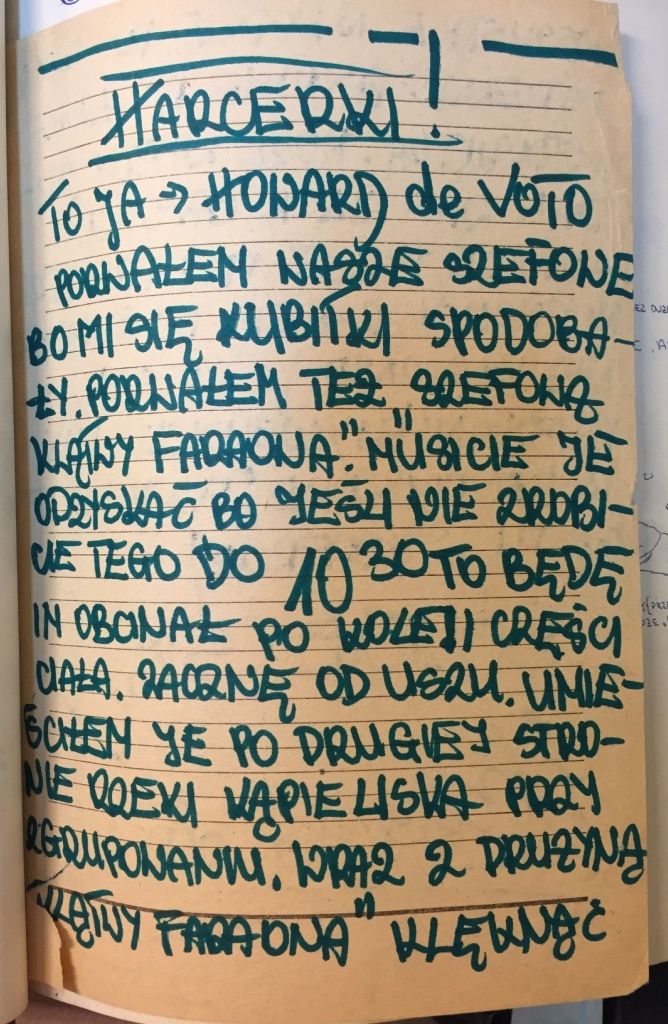 HARCERKI!
TO JA → HOWARD de VOTO
PORWAŁEM WASZE SZEFOWE
BO MI SIĘ KUBITKI SPODOBA-
ŁY. PORWAŁEM TEŻ SZEFOWĄ
KLĄTWY FARAONA". "MUSICIE JE
ODZYSKAĆ BO JEŚLI NIE ZROBI-
CIE TEGO DO 10 30 TO BĘDĘ
IM OBCINAŁ PO KOLEJI CZĘŚCI
CIAŁA. ZACZNĘ OD USZU. UMIE-
ŚCIŁEM JE PO DRUGIEJ STRO-
NIE RZEKI KĄPIELISKA PRZY
ZGRUPOWANIU. WRAZ Z DRUŻYNĄ
"KLĄTWY FARAONA" KLĘKNĄĆ